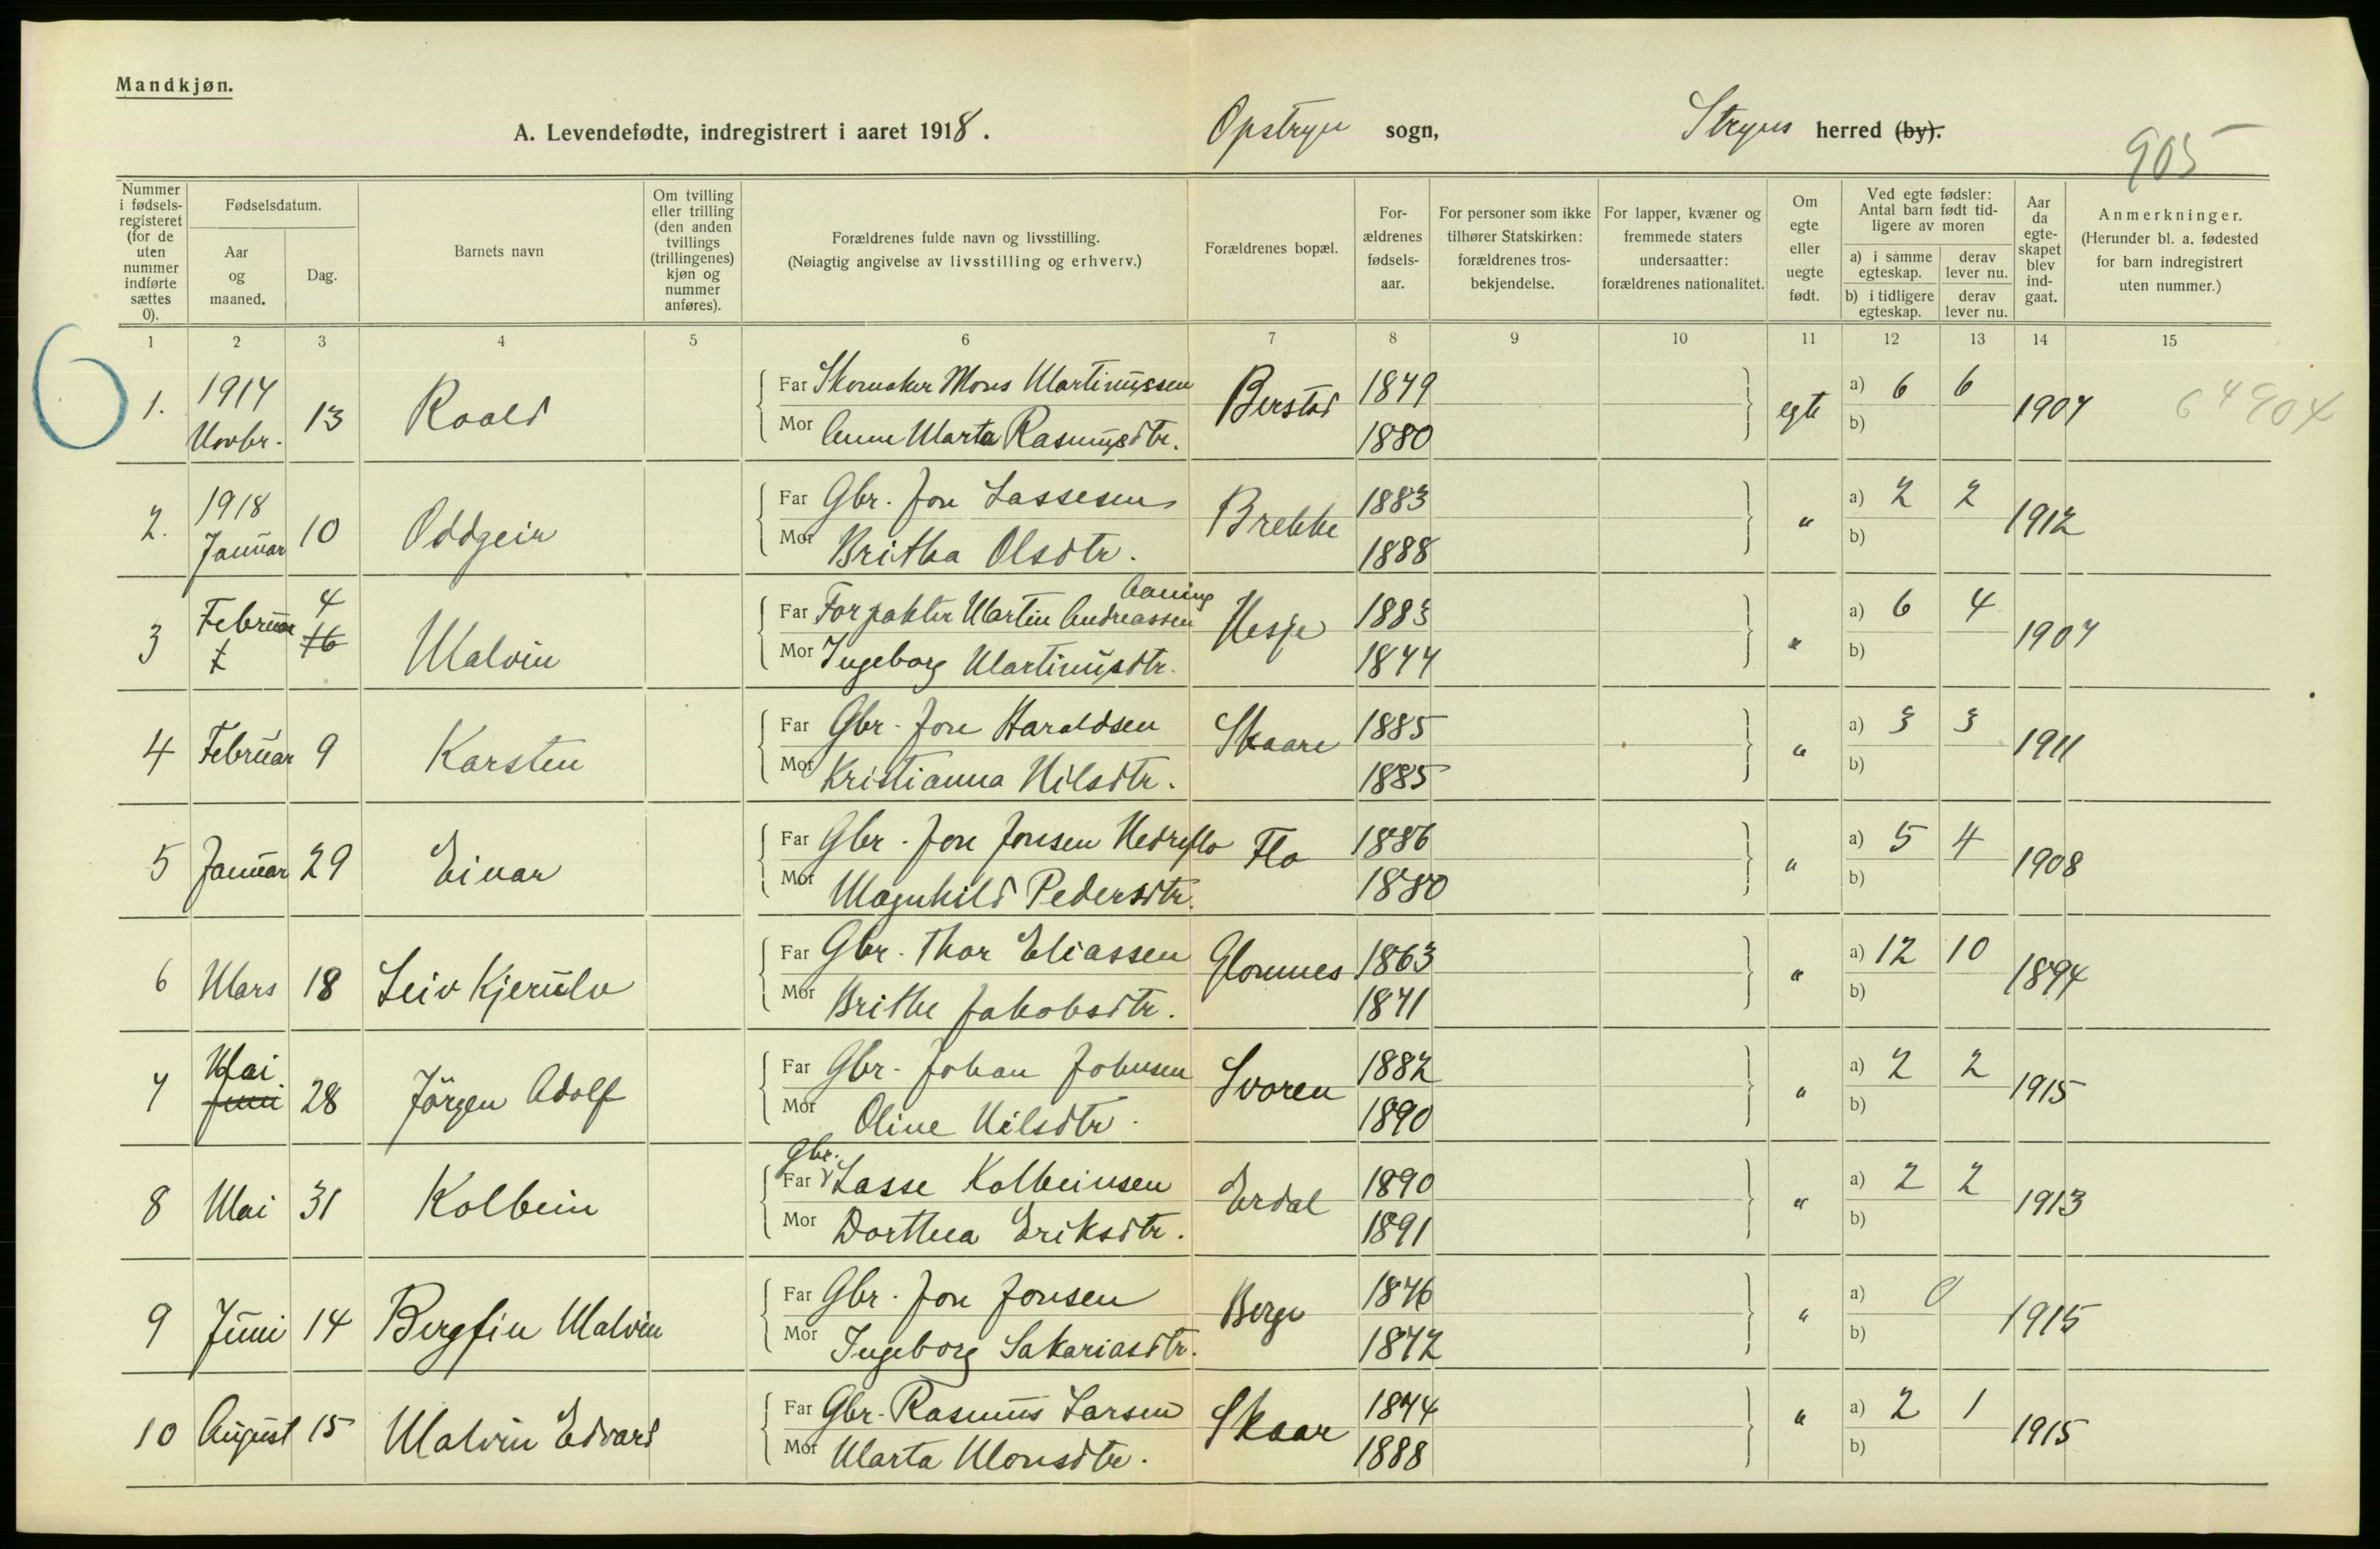 Mandkjøn.
A. Levendefødte, indregistrert i aaret 1918. Opstryn sogn, Stryns herred (by).
905
Nummer i fødselsregisteret (for de uten nummer indførte sættes 0).
Fødselsdatum.
Aar og maaned.
Dag.
Barnets navn
Om tvilling eller trilling (den anden tvillings (trillingenes) kjøn og nummer anføres).
Forældrenes fulde navn og livsstilling.
(Nøiagtig angivelse av livsstilling og erhverv.)
Forældrenes bopæl.
Forældrenes fødselsaar.
For personer som ikke tilhører Statskirken: forældrenes trosbekjendelse.
For lapper, kvæner og fremmede staters undersaatter: forældrenes nationalitet.
Om egte eller uegte født.
Ved egte fødsler: Antal barn født tidligere av moren
a) i samme egteskap. derav lever nu.
b) i tidligere egteskap. derav lever nu.
Aar da egteskapet blev indgaat.
Anmerkninger.
(Herunder bl. a. fødested for barn indregistrert uten nummer.)
1 2 3 4 5 6 7 8 9 10 11 12 13 14 15
6
1. 1917 Novbr. 13 Roald Far Skomaker Mons Martinussen Berstad 1879 egte a) 6 6 1907
Mor Anne Marta Rasmusdtr. 1880 b)
2. 1918 Januar 10 Oddgeir Far Gbr. Jon Lassesen Brekke 1883 " a) 2 2 1912
Mor Britha Olsdtr. 1888 b)
3 Februar 4 16 Malvin Far Forpakter Martin Andreassen Aaning Hesje 1883 " a) 6 4 1907
Mor Ingeborg Martinusdtr. 1877 b)
4 Februar 9 Karsten Far Gbr. Jon Haraldsen Skaare 1885 " a) 3 3 1911
Mor Kristianna Nilsdtr. 1885 b)
5 Januar 29 Einar Far Gbr. Jon Jonsen Nedreflo Flo 1886 " a) 5 4 1908
Mor Magnhild Pedersdtr. 1880 b)
6 Mars 18 Leiv Kjerulv Far Gbr. Thor Eliassen Glomnes 1863 " a) 12 10 1894
Mor Brithe Jakobsdtr. 1871 b)
7 Mai Juni 28 Jörgen Adolf Far Gbr. Johan Johnsen Svoren 1882 " a) 2 2 1915
Mor Oline Nilsdtr. 1890 b)
8 Mai 31 Kolbein Far Gbr. Lasse Kolbeinsen Erdal 1890 " a) 2 2 1913
Mor Dorthea Eriksdtr. 1891 b)
9 Juni 14 Bergfin Malvin Far Gbr. Jon Jonsen Berge 1876 " a) 0 1915
Mor Ingeborg Sakariasdtr. 1872 b)
10 August 15 Malvin Edvard Far Gbr. Rasmus Larsen Skaar 1874 " a) 2 1 1915
Mor Marta Monsdtr. 1888 b)